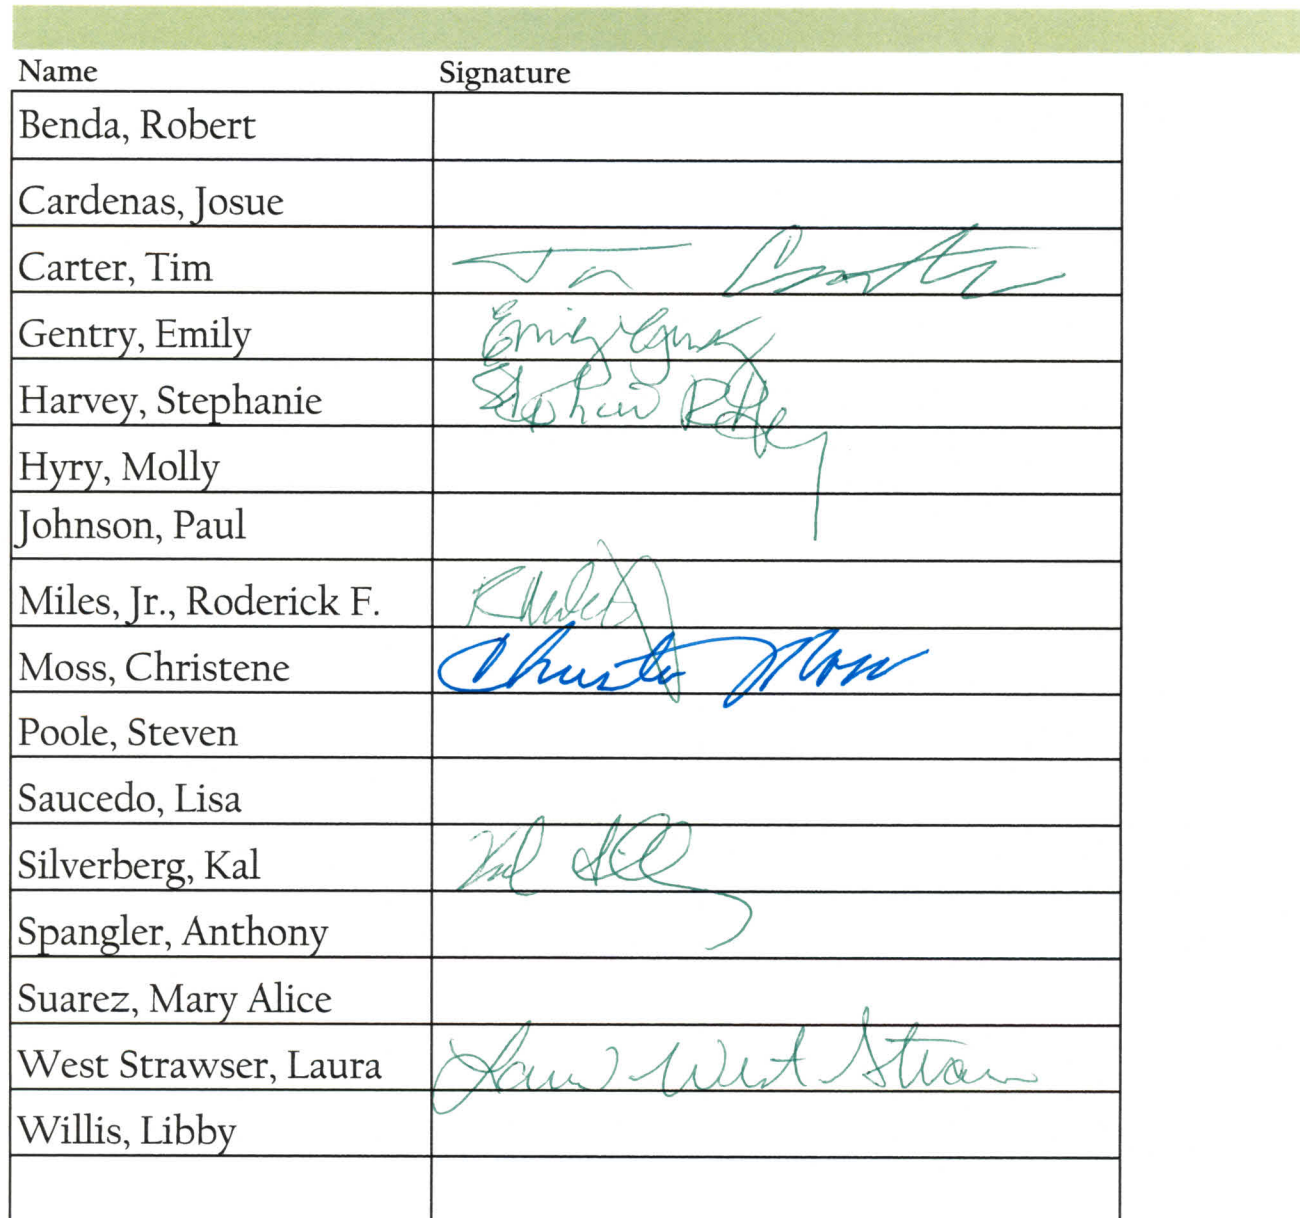 Name Signature
Benda, Robert
Cardenas, Josue
Carter, Tim
Gentry, Emily Emily
Harvey, Stephanie
Hyry, Molly
Johnson, Paul
Miles, Jr., Roderick F.
Moss, Christene Moss
Poole, Steven
Saucedo, Lisa
Silverberg, Kal
Spangler, Anthony
Suarez, Mary Alice
West Strawser, Laura West
Willis, Libby